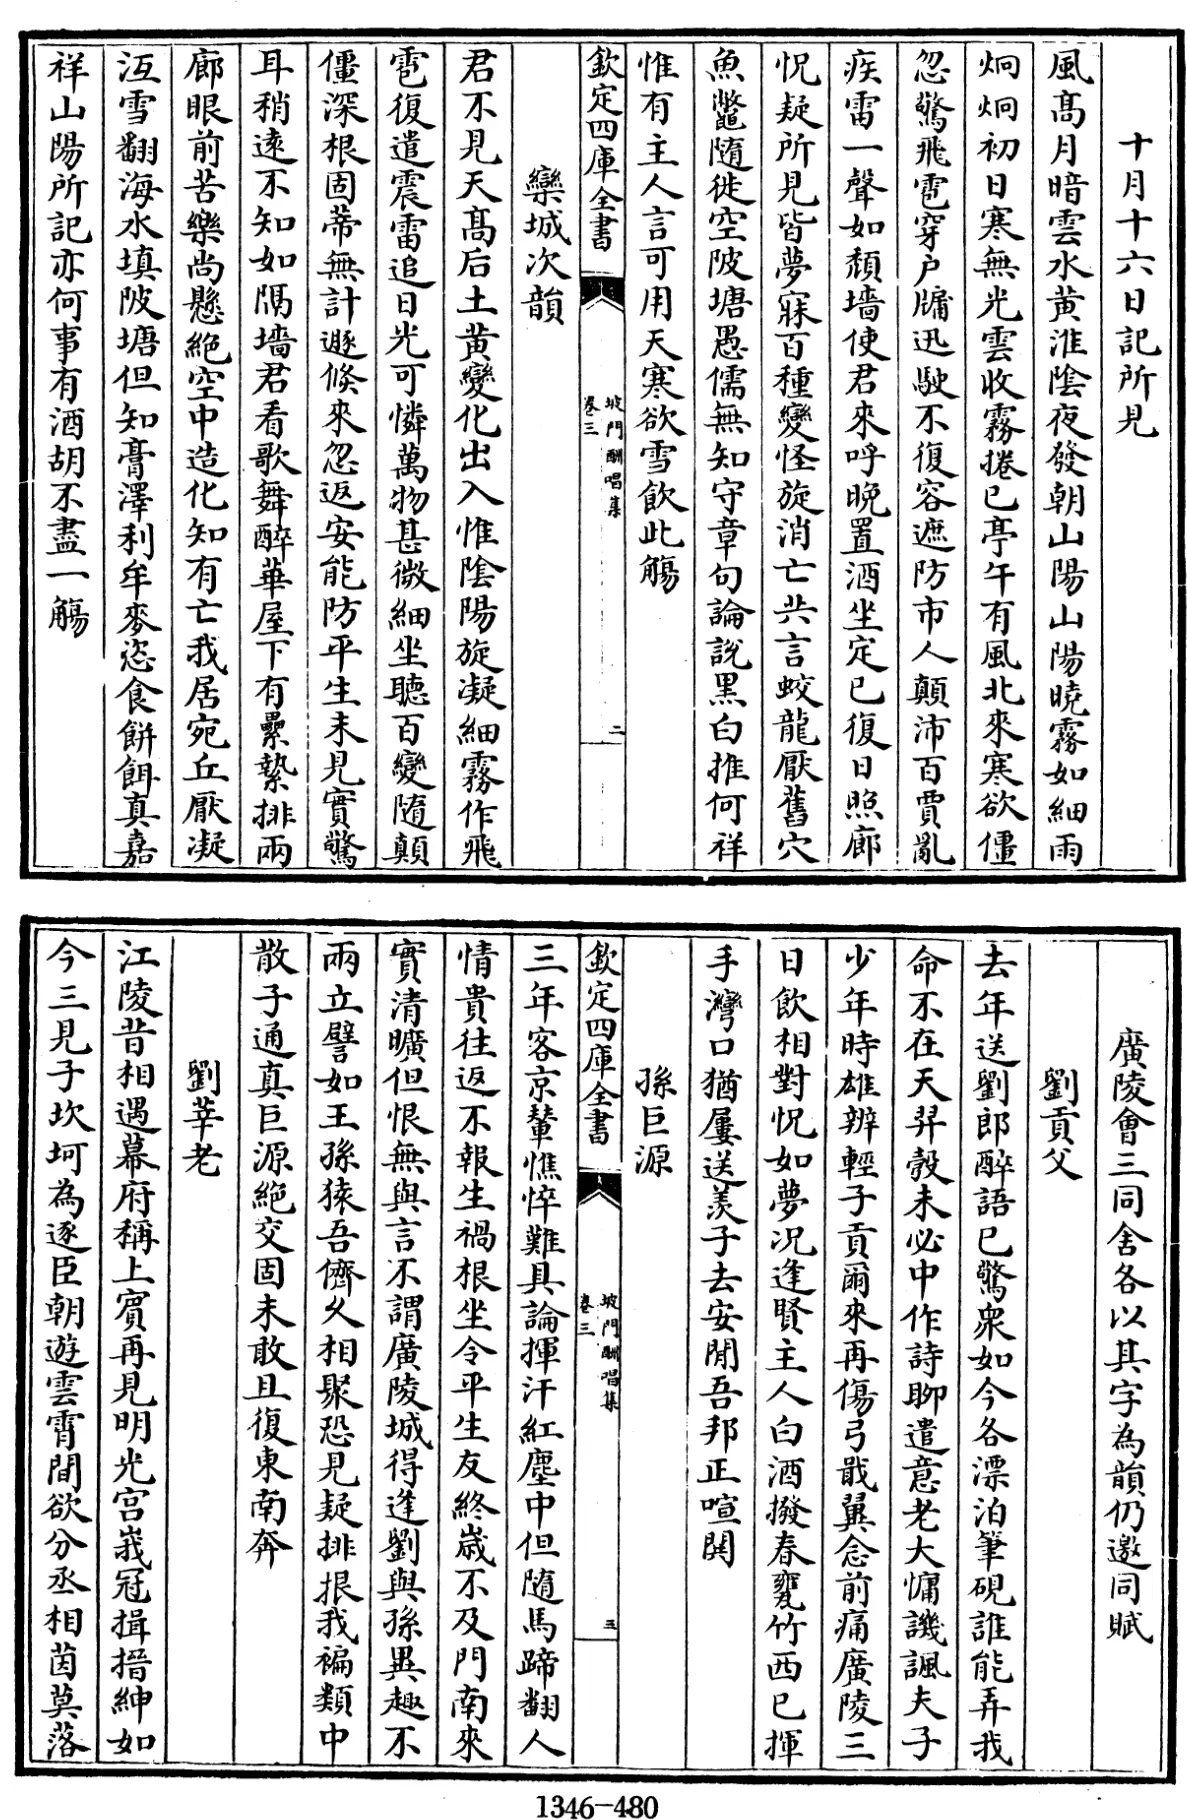 十月十六日記所見
風髙月暗雲水黄淮陰夜發朝山陽山陽曉霧如細雨
炯炯初日寒無光雲收霧捲已亭午有風北來寒欲僵
忽驚飛雹穿户牖迅駛不復容遮防市人顛沛百賈亂
疾雷一聲如頽墻使君來呼晚置酒坐定已復日照廊
怳疑所見皆夢寐百種變怪旋消亡共言蛟龍厭舊穴
魚鼈隨徙空陂塘愚儒無知守章句論說黒白推何祥
惟有主人言可用天寒欲雪飲此觴
欽定四庫全書
坡門酬唱集
卷三
二
欒城次韻
君不見天髙后土黄變化出入惟陰陽旋凝細霧作飛
雹復遣震雷追日光可憐萬物甚微細坐聽百變隨顛
僵深根固蒂無計遯倐來忽返安能防平生未見實驚
耳稍逺不知如隔墻君看歌舞醉華屋下有纍縶排兩
廊眼前苦樂尚懸絶空中造化知有亡我居宛丘厭凝
沍雪翻海水填陂塘但知膏澤利牟麥恣食餅餌真嘉
祥山陽所記亦何事有酒胡不盡一觴
廣陵會三同舍各以其字為韻仍邀同賦
劉貢父
去年送劉郎醉語已驚衆如今各漂泊筆硯誰能弄我
命不在天羿彀未必中作詩聊遣意老大慵譏諷夫子
少年時雄辨輕子貢爾來再傷弓戢翼念前痛廣陵三
日飲相對怳如夢况逢賢主人白酒撥春甕竹西已揮
手灣口猶屢送羡子去安閒吾邦正喧閧
孫巨源
欽定四庫全書
坡門酬唱集
卷三
三
三年客京輦憔悴難具論揮汗紅塵中但隨馬蹄翻人
情貴往返不報生禍根坐令平生友終歳不及門南來
實清曠但恨無與言不謂廣陵城得逢劉與孫異趣不
兩立譬如王孫猿吾儕久相聚恐見疑排拫我褊類中
散子通真巨源絶交固未敢且復東南奔
劉莘老
江陵昔相遇幕府稱上賓再見明光宫峩冠揖搢紳如
今三見子坎坷為逐臣朝遊雲霄間欲分丞相茵莫落
1346-480